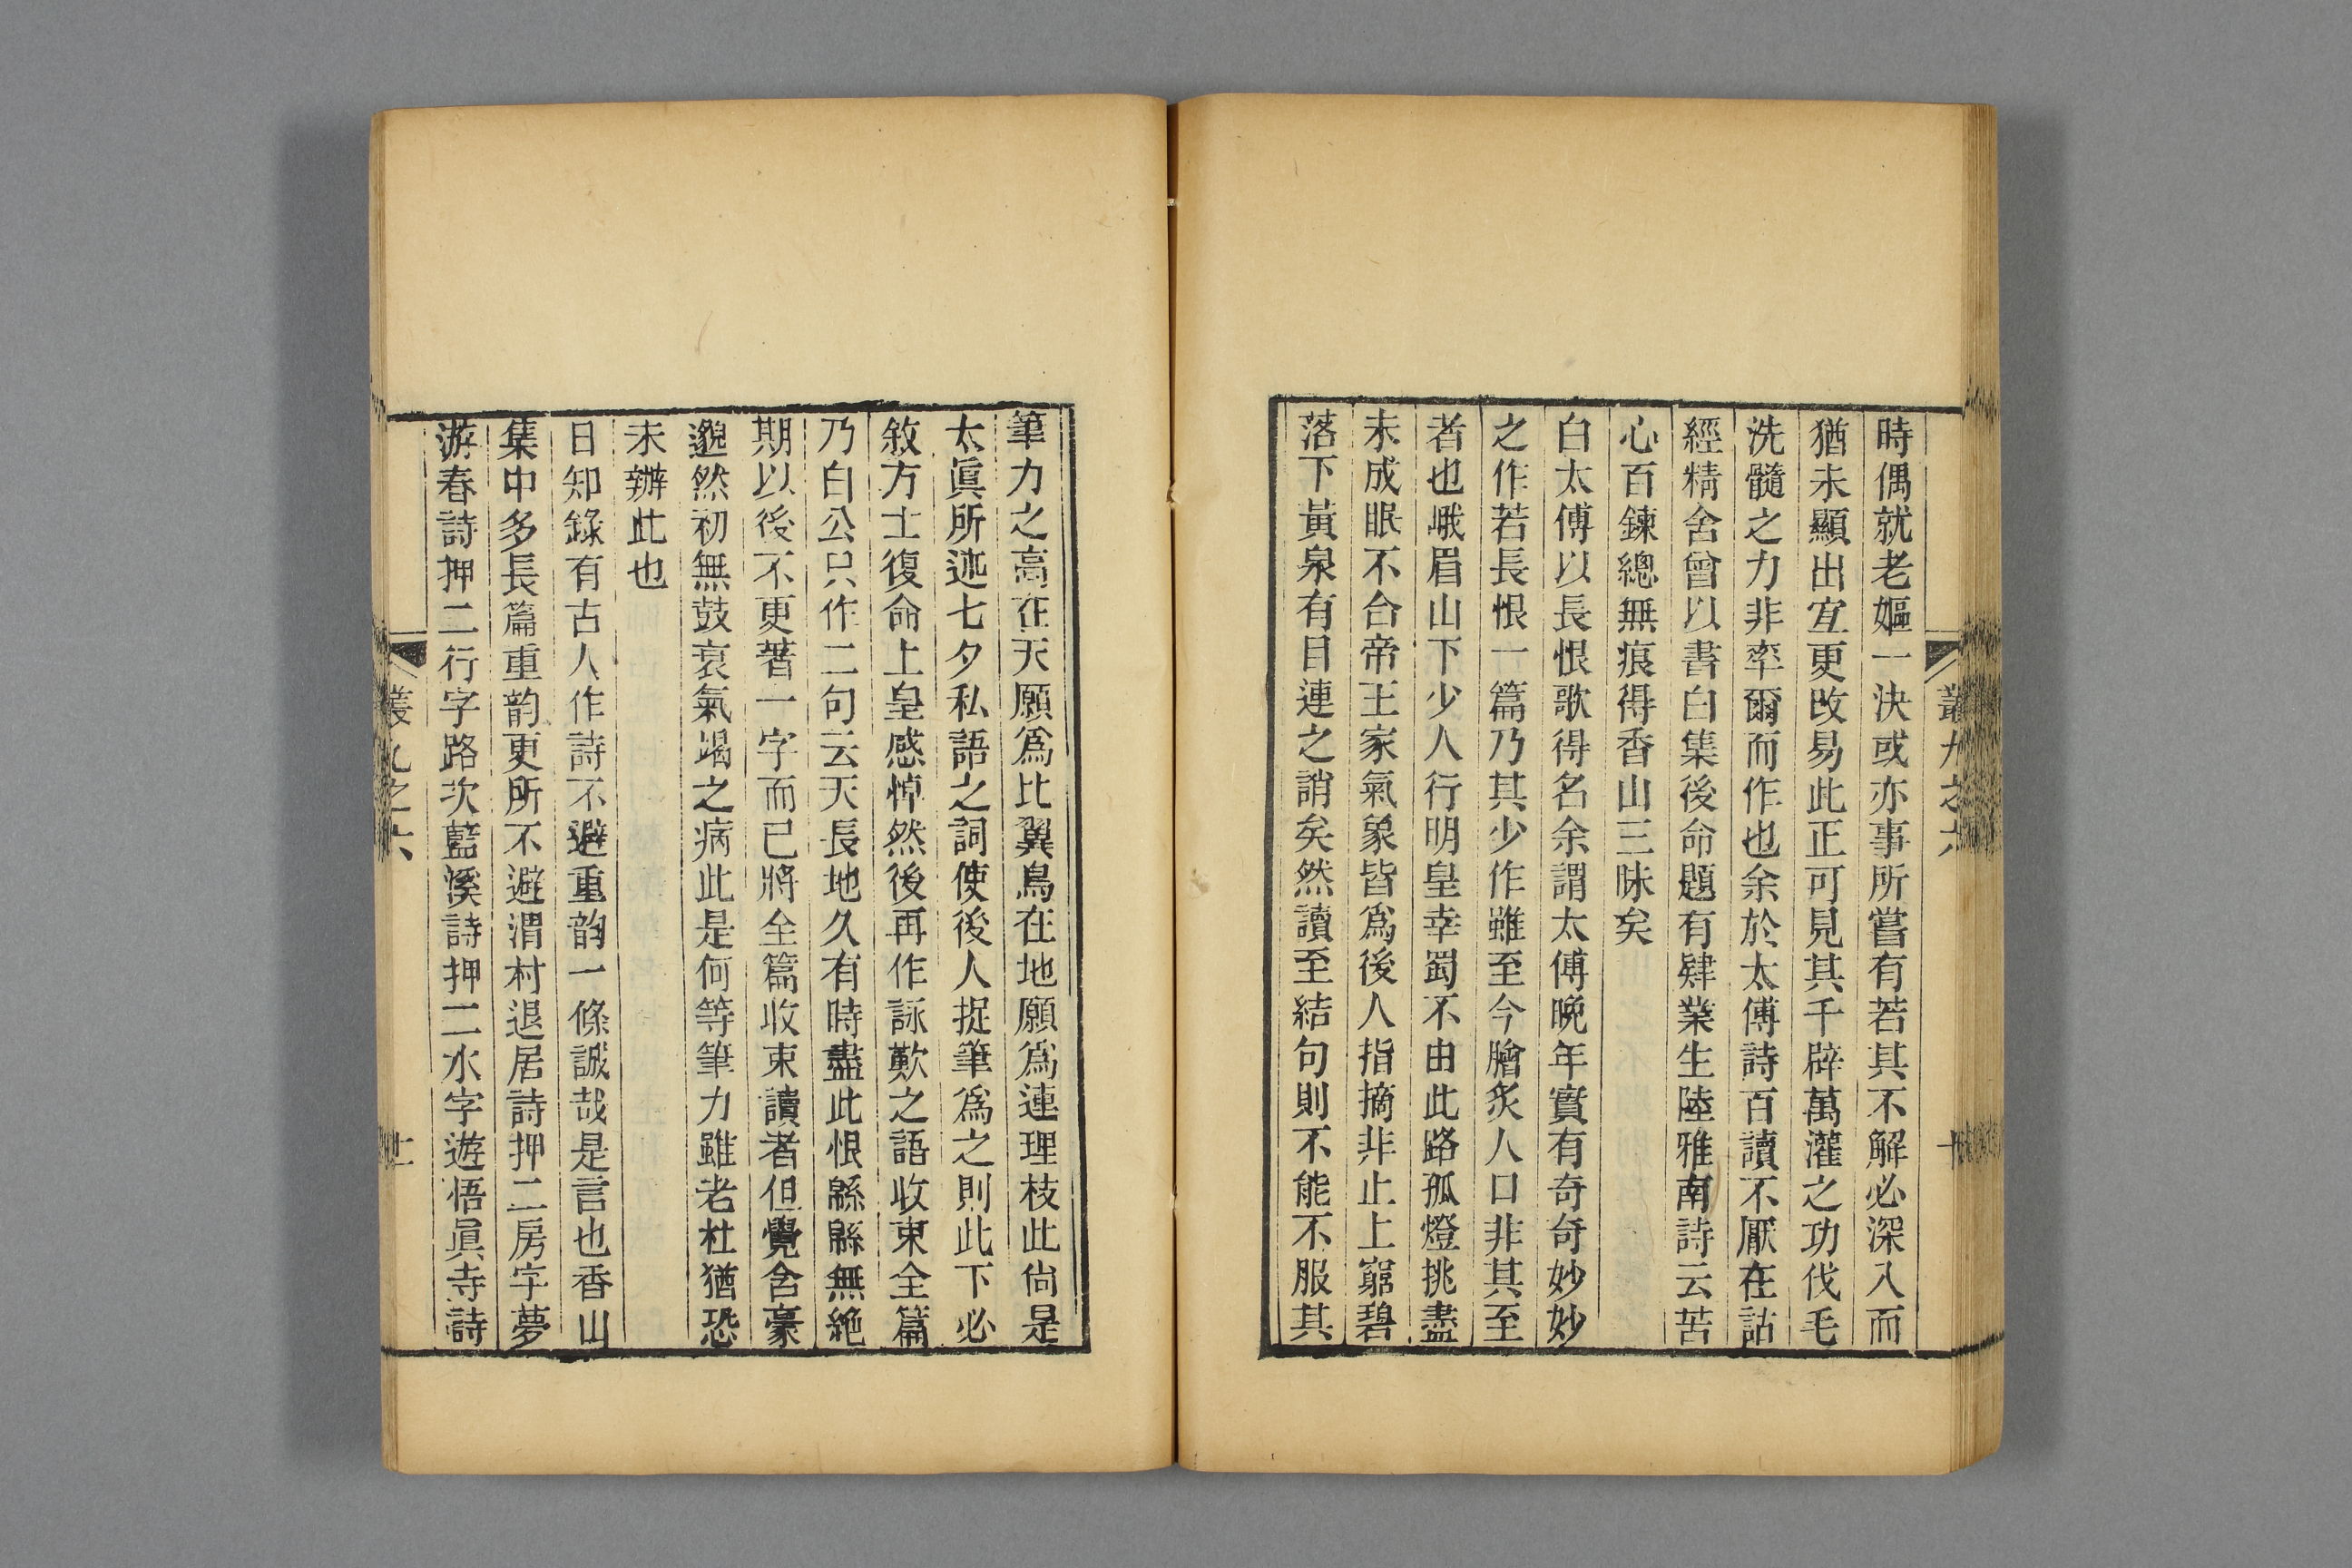 叢九之六
十
時偶就老嫗一決或亦事所嘗有若其不解必深入而
猶未顯出宜更改易此正可見其千辟萬灌之功伐毛
洗髓之力非率爾而作也余於太傅詩百讀不厭在詁
經精舍曾以書白集後命題有肄業生陸雅南詩云苦
心百鍊總無痕得香山三昧矣
白太傅以長恨歌得名余謂太傅晚年實有奇奇妙妙
之作若長恨一篇乃其少作雖至今膾炙人口非其至
者也峨眉山下少人行明皇幸蜀不由此路孤燈挑盡
未成眠不合帝王家氣象皆爲後人指摘非止上窮碧
落下黃泉有目連之誚矣然讀至結句則不能不服其
筆力之高在天願爲比翼鳥在地願爲連理枝此尙是
太眞所述七夕私語之詞使後人捉筆爲之則此下必
敘方士復命上皇感悼然後再作詠歎之語收束全篇
乃白公只作二句云天長地久有時盡此恨緜緜無絶
期以後不更著一字而已將全篇收束讀者但覺含豪
邈然初無鼓衰氣竭之病此是何等筆力雖老杜猶恐
未辦此也
日知錄有古人作詩不避重韵一條誠哉是言也香山
集中多長篇重韵更所不避渭村退居詩押二房字夢
游春詩押二行字路次藍溪詩押二水字遊悟眞寺詩
叢九之六
十一